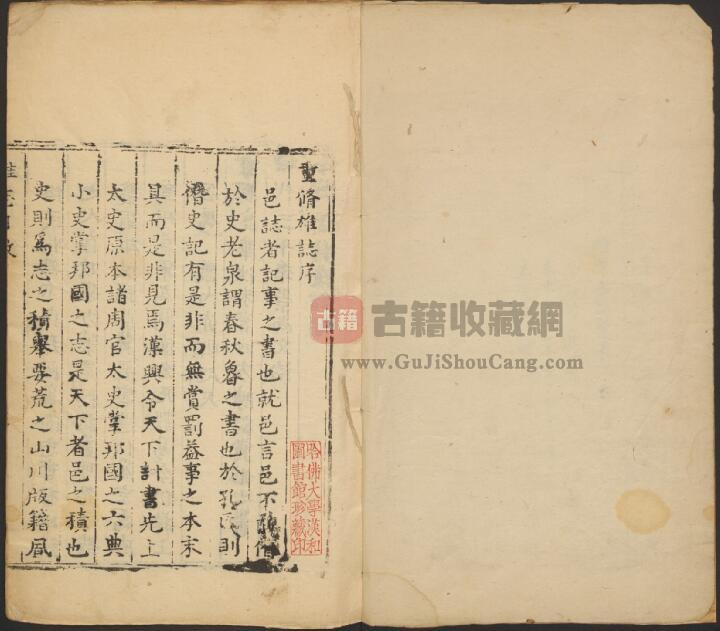 重脩雄誌序
邑誌者記事之書也就邑言邑不
於史老泉謂春秋魯之書也於孔氏則
僭史記有是非而無賞罰益事之本末
具而是非見焉漢興令天下計書先上
太史原本諸周官太史掌邦國之六典
小史掌邦國之志是天下者邑之積也
史則為志之積舉要荒之山川版籍風
塔佛大學漢和
圖書館珍藏印
古籍
古籍收藏網
www.GuJiShouCang.com